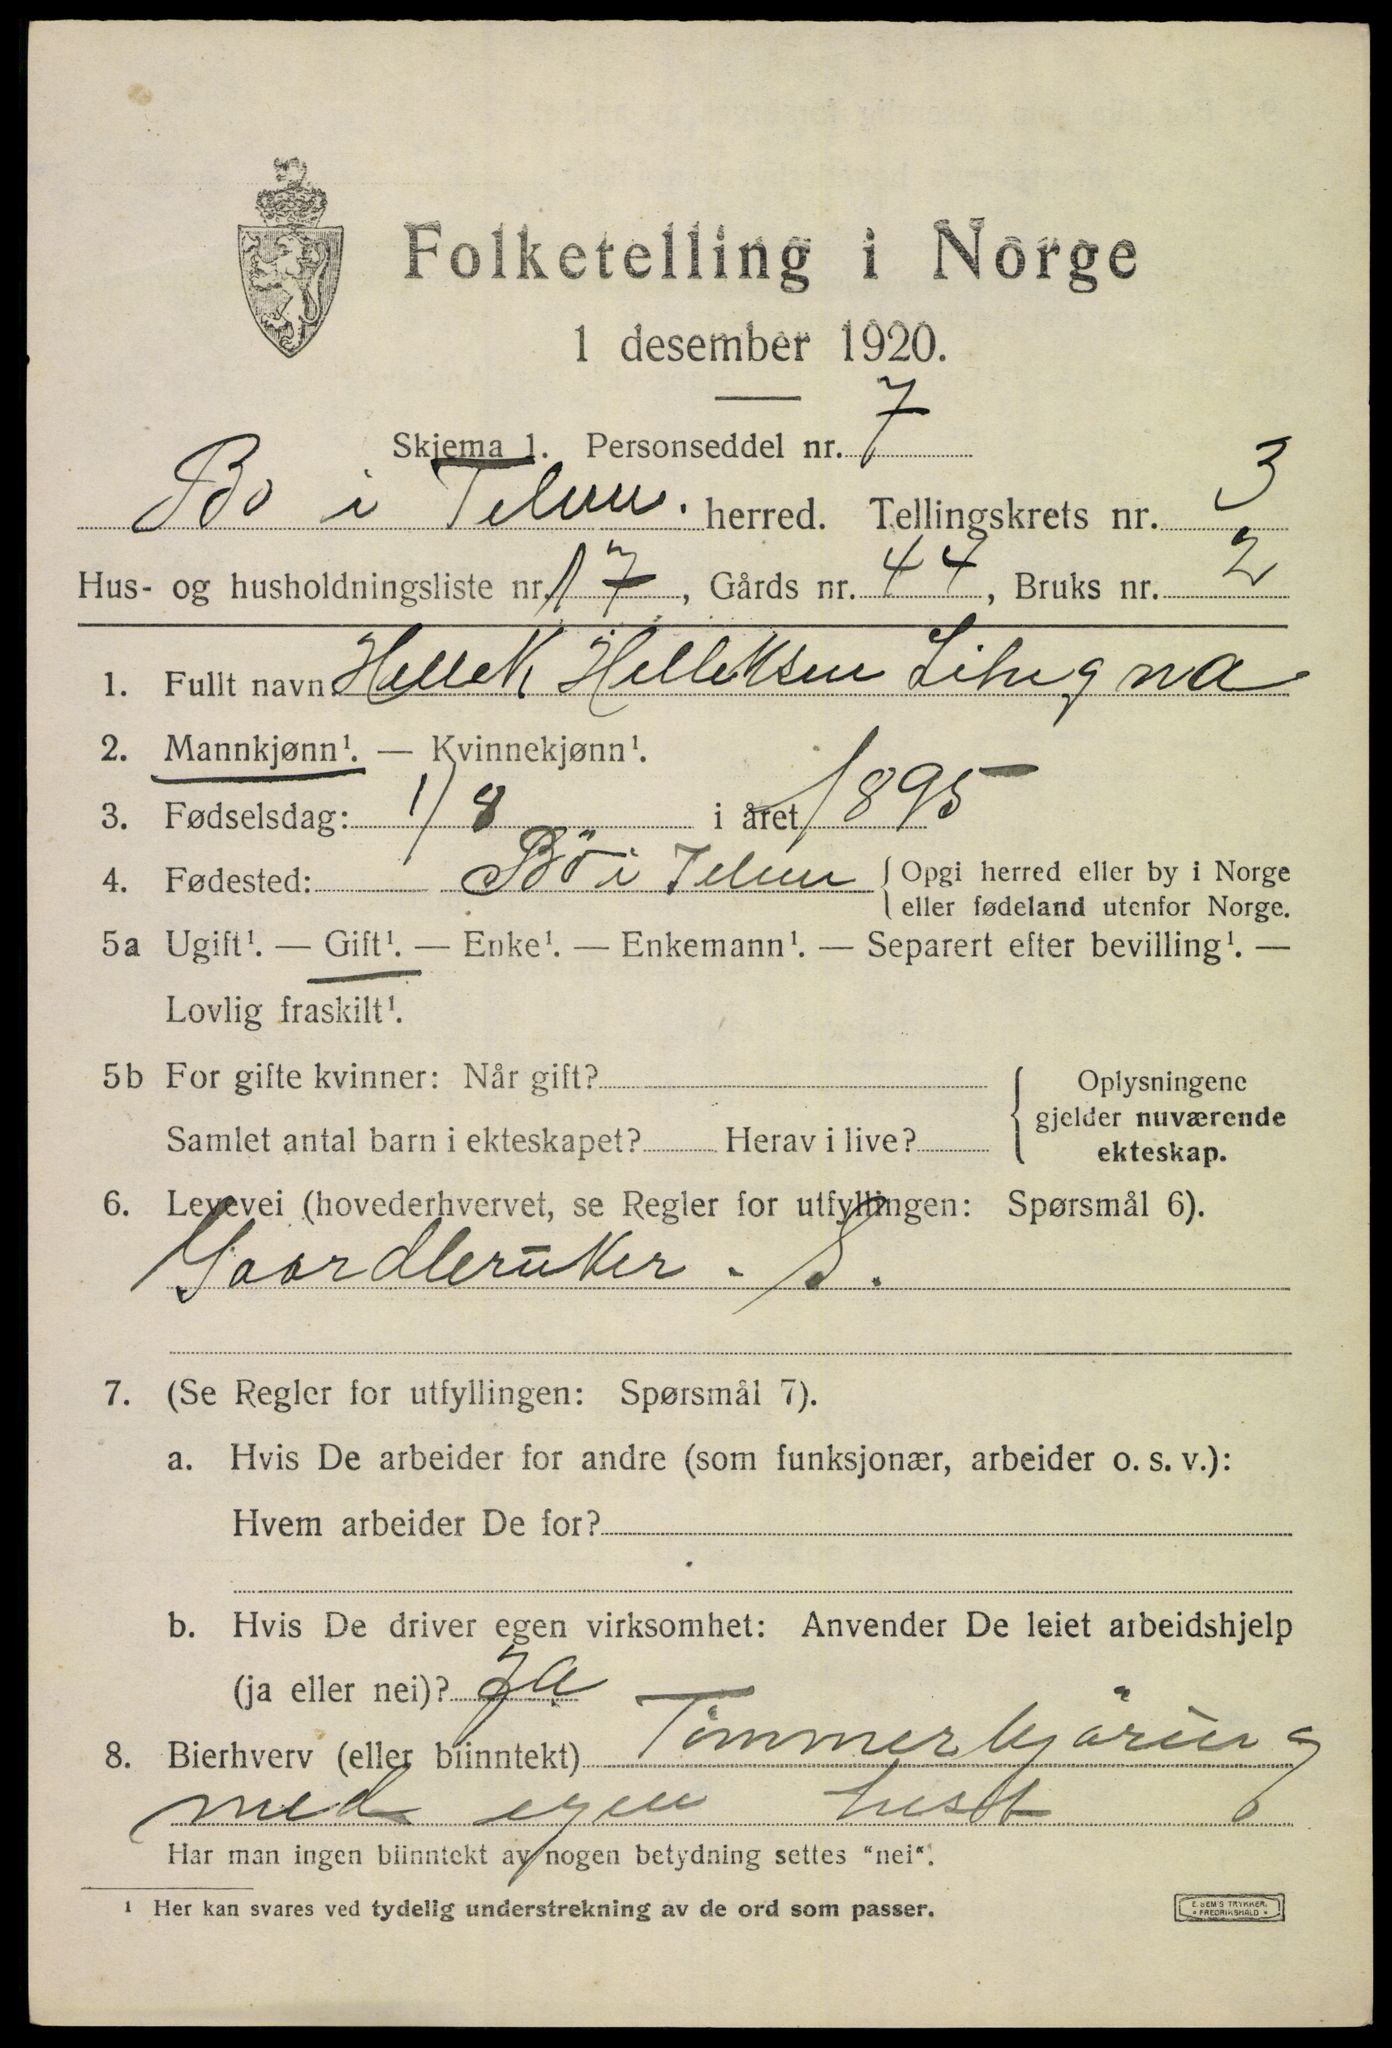 Folketelling i Norge
1 desember 1920.
Skjema 1. Personseddel nr. 7
Bø i Telem. herred. Tellingskrets nr. 3
Hus- og husholdningsliste nr. 17, Gårds nr. 44, Bruks nr. 2
1. Fullt navn Hellek Helleksen
2. Mannkjønn¹. — Kvinnekjønn¹.
3. Fødselsdag: 1/8 i året 1895
4. Fødested: Bö i Telem { Opgi herred eller by i Norge
eller fødeland utenfor Norge.
5a Ugift¹. — Gift¹. — Enke¹. — Enkemann¹. — Separert efter bevilling¹. —
Lovlig fraskilt¹.
5b For gifte kvinner: Når gift?
Samlet antal barn i ekteskapet? Herav i live?
{ Oplysningene
gjelder nuværende
ekteskap.
6. Levevei (hovederhvervet, se Regler for utfyllingen: Spørsmål 6).
Gaardbruker. S.
7. (Se Regler for utfyllingen: Spørsmål 7).
a. Hvis De arbeider for andre (som funksjonær, arbeider o. s. v.):
Hvem arbeider De for?
b. Hvis De driver egen virksomhet: Anvender De leiet arbeidshjelp
(ja eller nei)? Ja
8. Bierhverv (eller biinntekt) Tømmerkjöring
med egen hest
Har man ingen biinntekt av nogen betydning settes "nei".
¹ Her kan svares ved tydelig understrekning av de ord som passer.
E. SEM'S TRYKKER.
* FREDRIKSHALD *